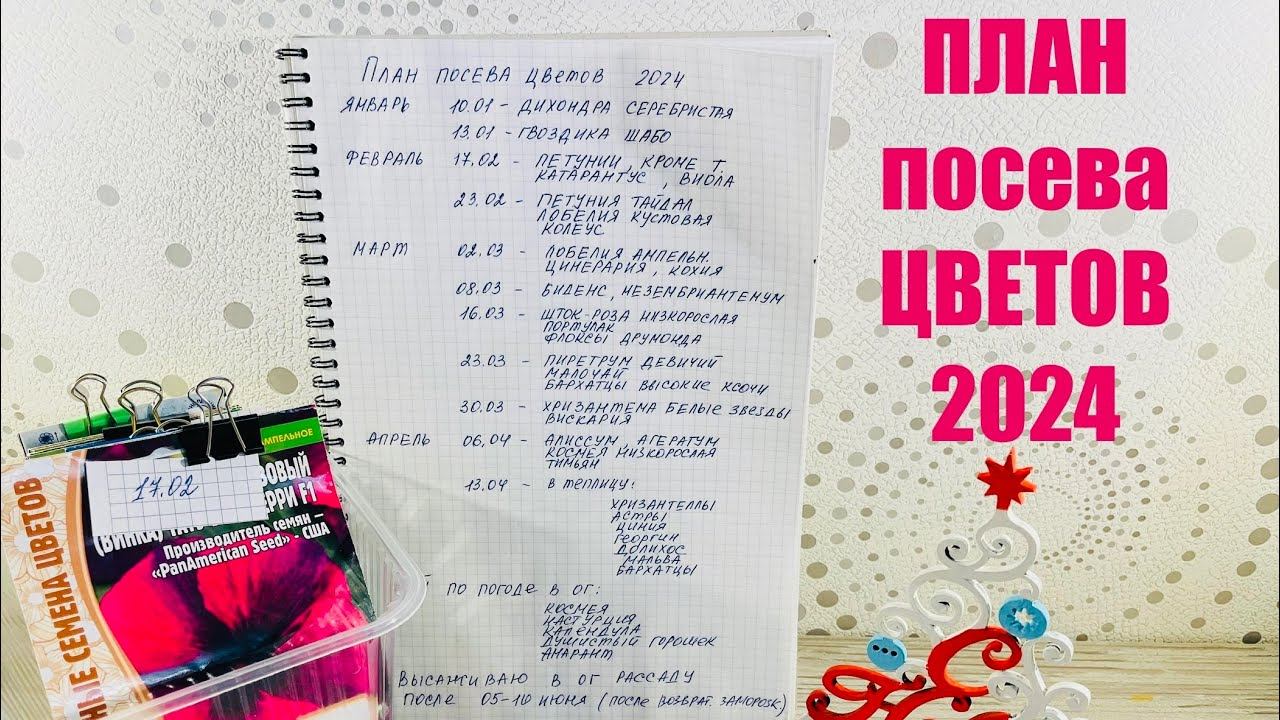 План посева цветов 2024
ЯНВАРЬ 10.01 - ДИХОНДРА СЕРЕБРИСТАЯ
13.01 - ГВОЗДИКА ШАБО
ФЕВРАЛЬ 17.02 - ПЕТУНИИ, КРОМЕ Т
КАТАРАНТУС, ВИОЛА
23.02 - ПЕТУНИЯ ТАЙДАЛ
ЛОБЕЛИЯ КУСТОВАЯ
КОЛЕУС
МАРТ 02.03 - ЛОБЕЛИЯ АМПЕЛЬН.
ЦИНЕРАРИЯ, КОХИЯ
08.03 - БИДЕНС, МЕЗЕМБРИАНТЕМУМ
16.03 - ШТОК-РОЗА НИЗКОРОСЛАЯ
ПОРТУЛАК
ФЛОКСЫ ДРУМОНДА
23.03 - ПИРЕТРУМ ДЕВИЧИЙ
МАЛОЧАЙ
БАРХАТЦЫ ВЫСОКИЕ КСОЧИ
30.03 - ХРИЗАНТЕМА БЕЛЫЕ ЗВЕЗДЫ
ВИСКАРИЯ
АПРЕЛЬ 06.04 - АЛИССУМ, АГЕРАТУМ
КОСМЕЯ НИЗКОРОСЛАЯ
ТИМЬЯН
13.04 - В ТЕПЛИЦУ:
ХРИЗАНТЕМЫ
АСТРЫ
ЦИНИЯ
ГЕОРГИН
ДОЛИХОС
МАЛЬВА
БАРХАТЦЫ
ПО ПОГОДЕ В ОГ:
КОСМЕЯ
НАСТУРЦИЯ
КАЛЕНДУЛА
ДУШИСТЫЙ ГОРОШЕК
АМАРАНТ
ВЫСАЖИВАЮ В ОГ РАССАДУ
ПОСЛЕ 05-10 ИЮНЯ (ПОСЛЕ ВОЗВРАТ ЗАМОРОЗК)
ПЛАН
посева
ЦВЕТОВ
2024
АМПЕЛЬНОЕ
17.02
ОВЫЙ
(ВИНКА) ТАТ
ЕРРИ F1
Производитель семян –
«PanAmerican Seed» - США
НЫЕ СЕМЕНА ЦВЕТОВ